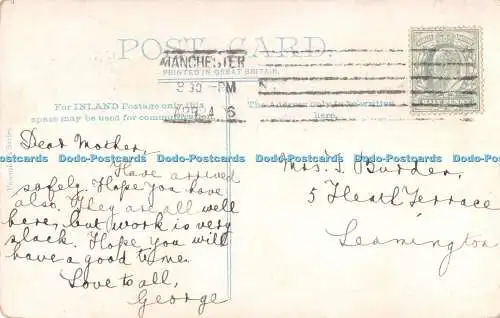 POST CARD.
MANCHESTER
PRINTED IN GREAT BRITAIN.
9 30 PM
For INLAND Postage only this
space may be used for communication.
The Address only to be written
here.
HALF PENNY
Dear Mother,
Have arrived
safely. Hope you have
also. They are all well
here, but work is very
slack. Hope you will
have a good time.
Love to all,
George
Mrs. S. Burden,
5 Heath Terrace
Leamington
Dodo-Postcards Dodo-Postcards Dodo-Postcards Dodo-Postcards Dodo-Postcards Dodo-Postcards